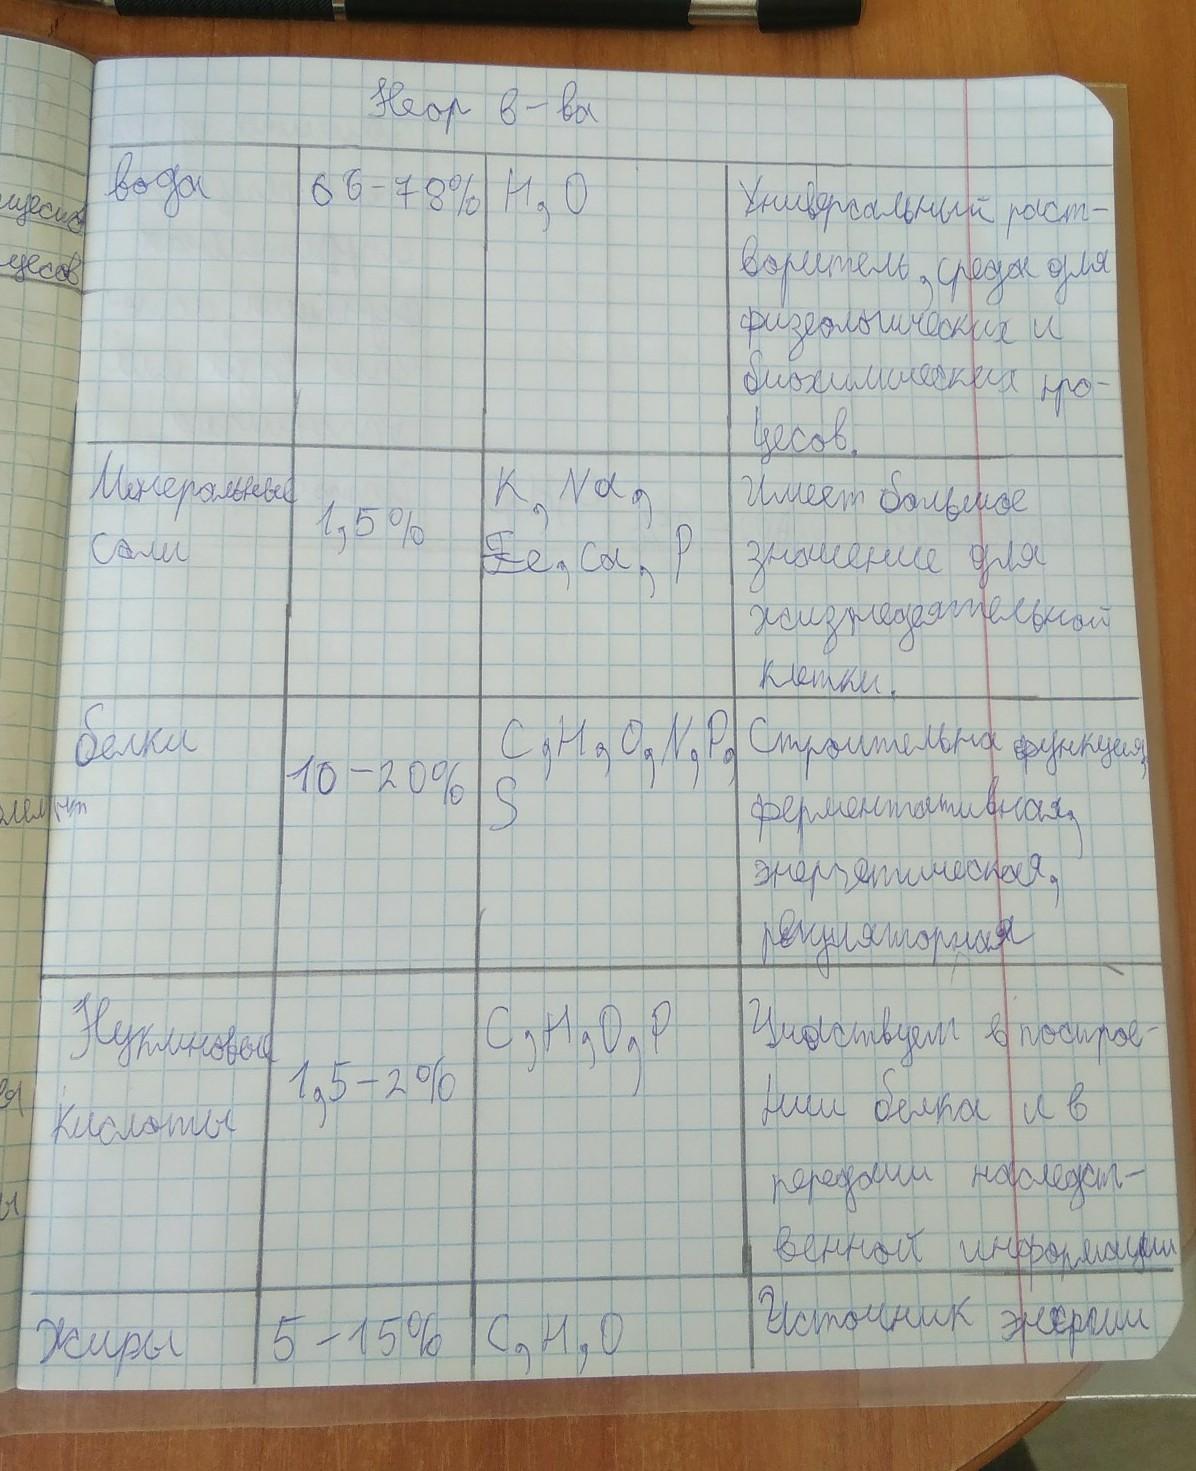 Неор в-ва
вода
66-78%
H, O
Универсальный раст-
воритель, среда для
физеологических и
биохимических про-
цесов.
Минеральные
соли
1,5%
K, Na,
Fe, Ca, P
Имеет большое
значение для
жизнедеятельной
клетки.
белки
10-20%
C, H, O, N, P,
S
Строительна функция,
ферментативная,
энергетическая,
регуляторная
Нуклиновые
кислоты
1,5-2%
C, H, O, P
Учавствуем в построе-
нии белка и в
передачи наследст-
венной информации
Жиры
5-15%
C, H, O
Источник энергии
цесов